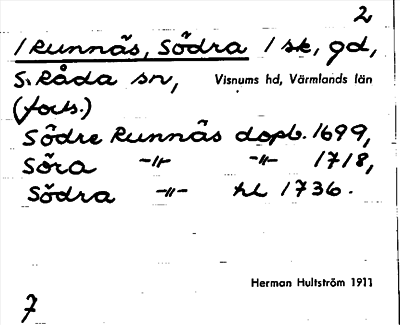 2
1 Runnäs, Södra 1 sk, gd,
S. Råda sn, Visnums hd, Värmlands län
(forts.)
Södre Runnäs dopb. 1699,
Söra -"- -"- 1718,
Södra -"- hl 1736.
Herman Hultström 1911
7